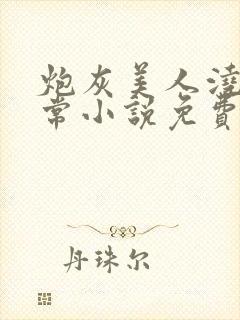 炮灰美人澆
常小説免費
丹珠尔